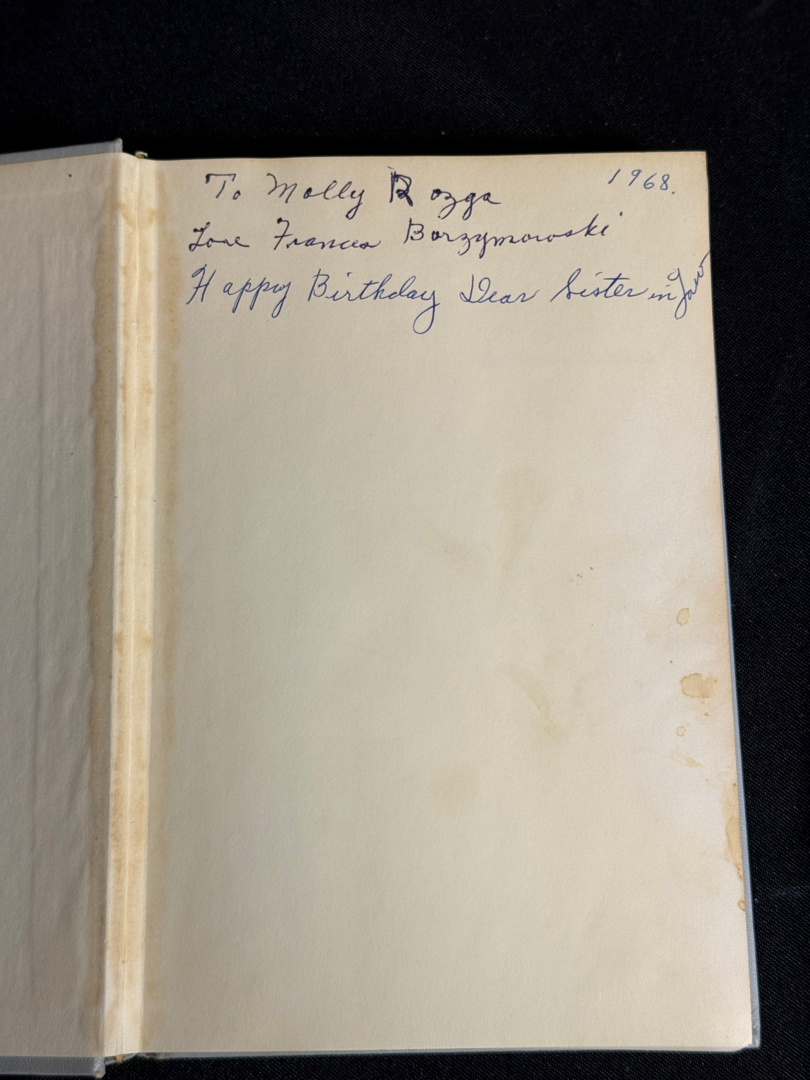 To Molly Rozga 1968.
Love Frances Borzymowski
Happy Birthday Dear Sister in Law